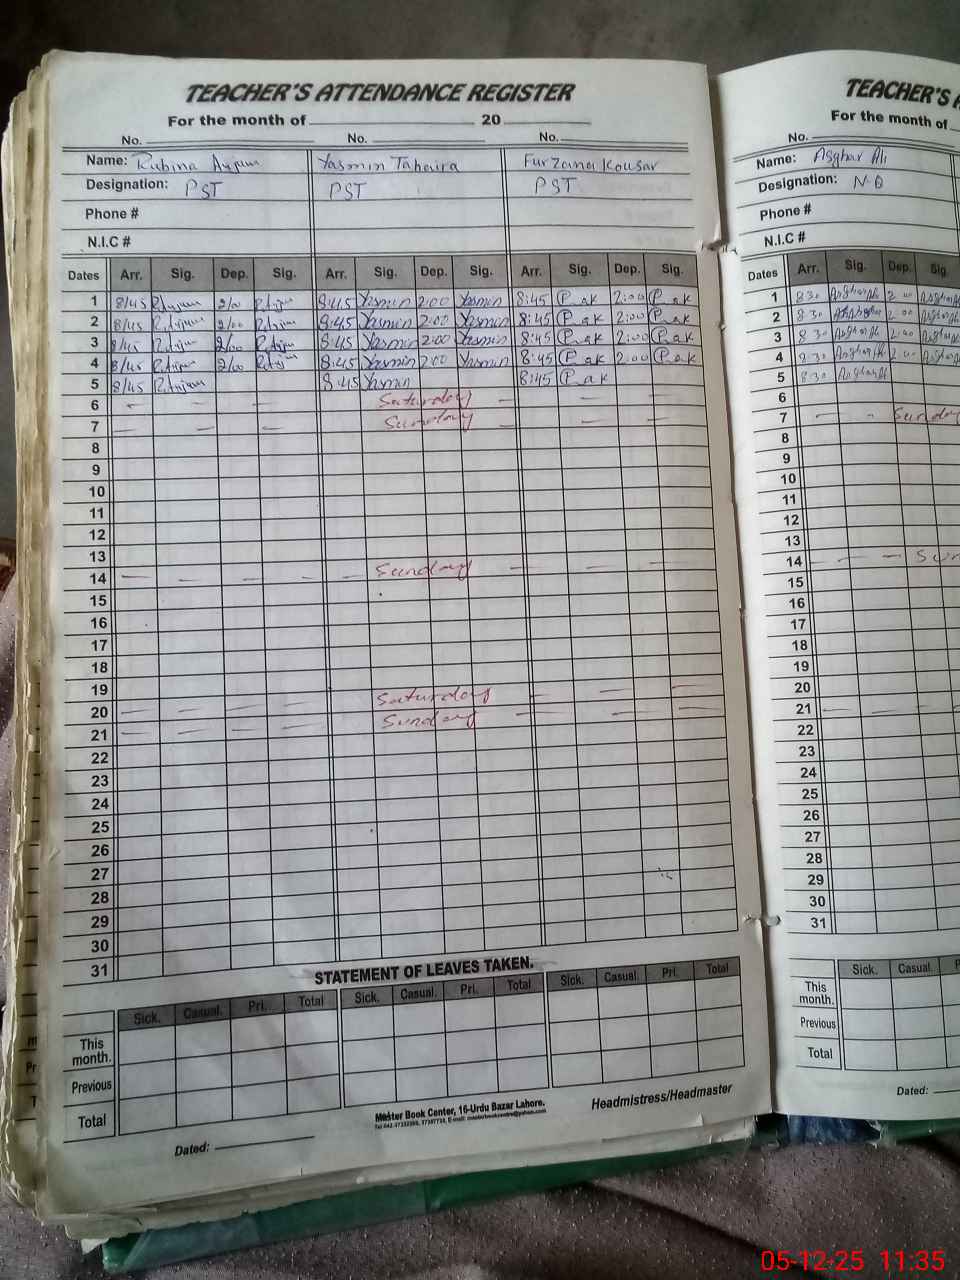 TEACHER'S ATTENDANCE REGISTER
For the month of 20
No. No. No.
Name: Rubina Anjum Yasmin Taheira Furzana Kousar
Designation: PST PST PST
Phone #
N.I.C #
Dates Arr. Sig. Dep. Sig. Arr. Sig. Dep. Sig. Arr. Sig. Dep. Sig.
1 8/45 R.Anjum 2/00 R.Anjum 8:45 Yasmin 2:00 Yasmin 8:45 2:00
2 8/45 R.Anjum 2/00 R.Anjum 8:45 Yasmin 2:00 Yasmin 8:45 2:00
3 8/45 R.Anjum 2/00 R.Anjum 8:45 Yasmin 2:00 Yasmin 8:45 2:00
4 8/45 R.Anjum 2/00 8:45 Yasmin 2:00 Yasmin 8:45 2:00
5 8/45 R.Anjum 8:45 Yasmin 8:45
6 — — — Saturday — — —
7 — — — Sunday — — —
8
9
10
11
12
13
14 — — — — — Sunday — — — —
15
16
17
18
19
20 — — — Saturday — — —
21 — — — Sunday — — — —
22
23
24
25
26
27
28
29
30
31
STATEMENT OF LEAVES TAKEN.
Sick. Casual. Pri. Total Sick. Casual. Pri. Total Sick. Casual. Pri. Total
This month.
Previous
Total
Master Book Center, 16-Urdu Bazar Lahore.
Headmistress/Headmaster
Dated:
TEACHER'S A
For the month of
No.
Name: Asghar Ali
Designation: N-Q
Phone #
N.I.C #
Dates Arr. Sig. Dep. Sig.
1 8 30 Asghar Ali 2 00 Asghar
2 8 30 Asghar Ali 2 00 Asghar
3 8 30 Asghar Ali 2 00 Asghar
4 8 30 Asghar Ali 2 00 Asghar
5 8 30 Asghar Ali
6
7 — - Sunday
8
9
10
11
12
13
14 — — Sun
15
16
17
18
19
20
21 — — — —
22
23
24
25
26
27
28
29
30
31
Sick. Casual. P
This month.
Previous
Total
Dated:
05-12-25 11:35